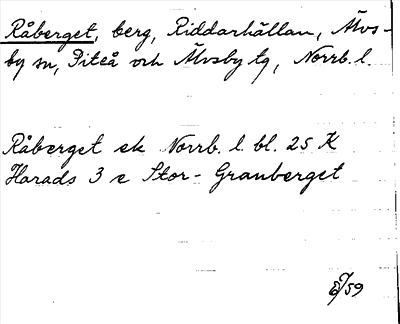 Råberget, berg, Riddarhällan, Älvs-
by sn, Piteå och Älvsby tg, Norrb. l.
Råberget ek Norrb. l. bl. 25 K
Harads 3 c Stor-Granberget
/59